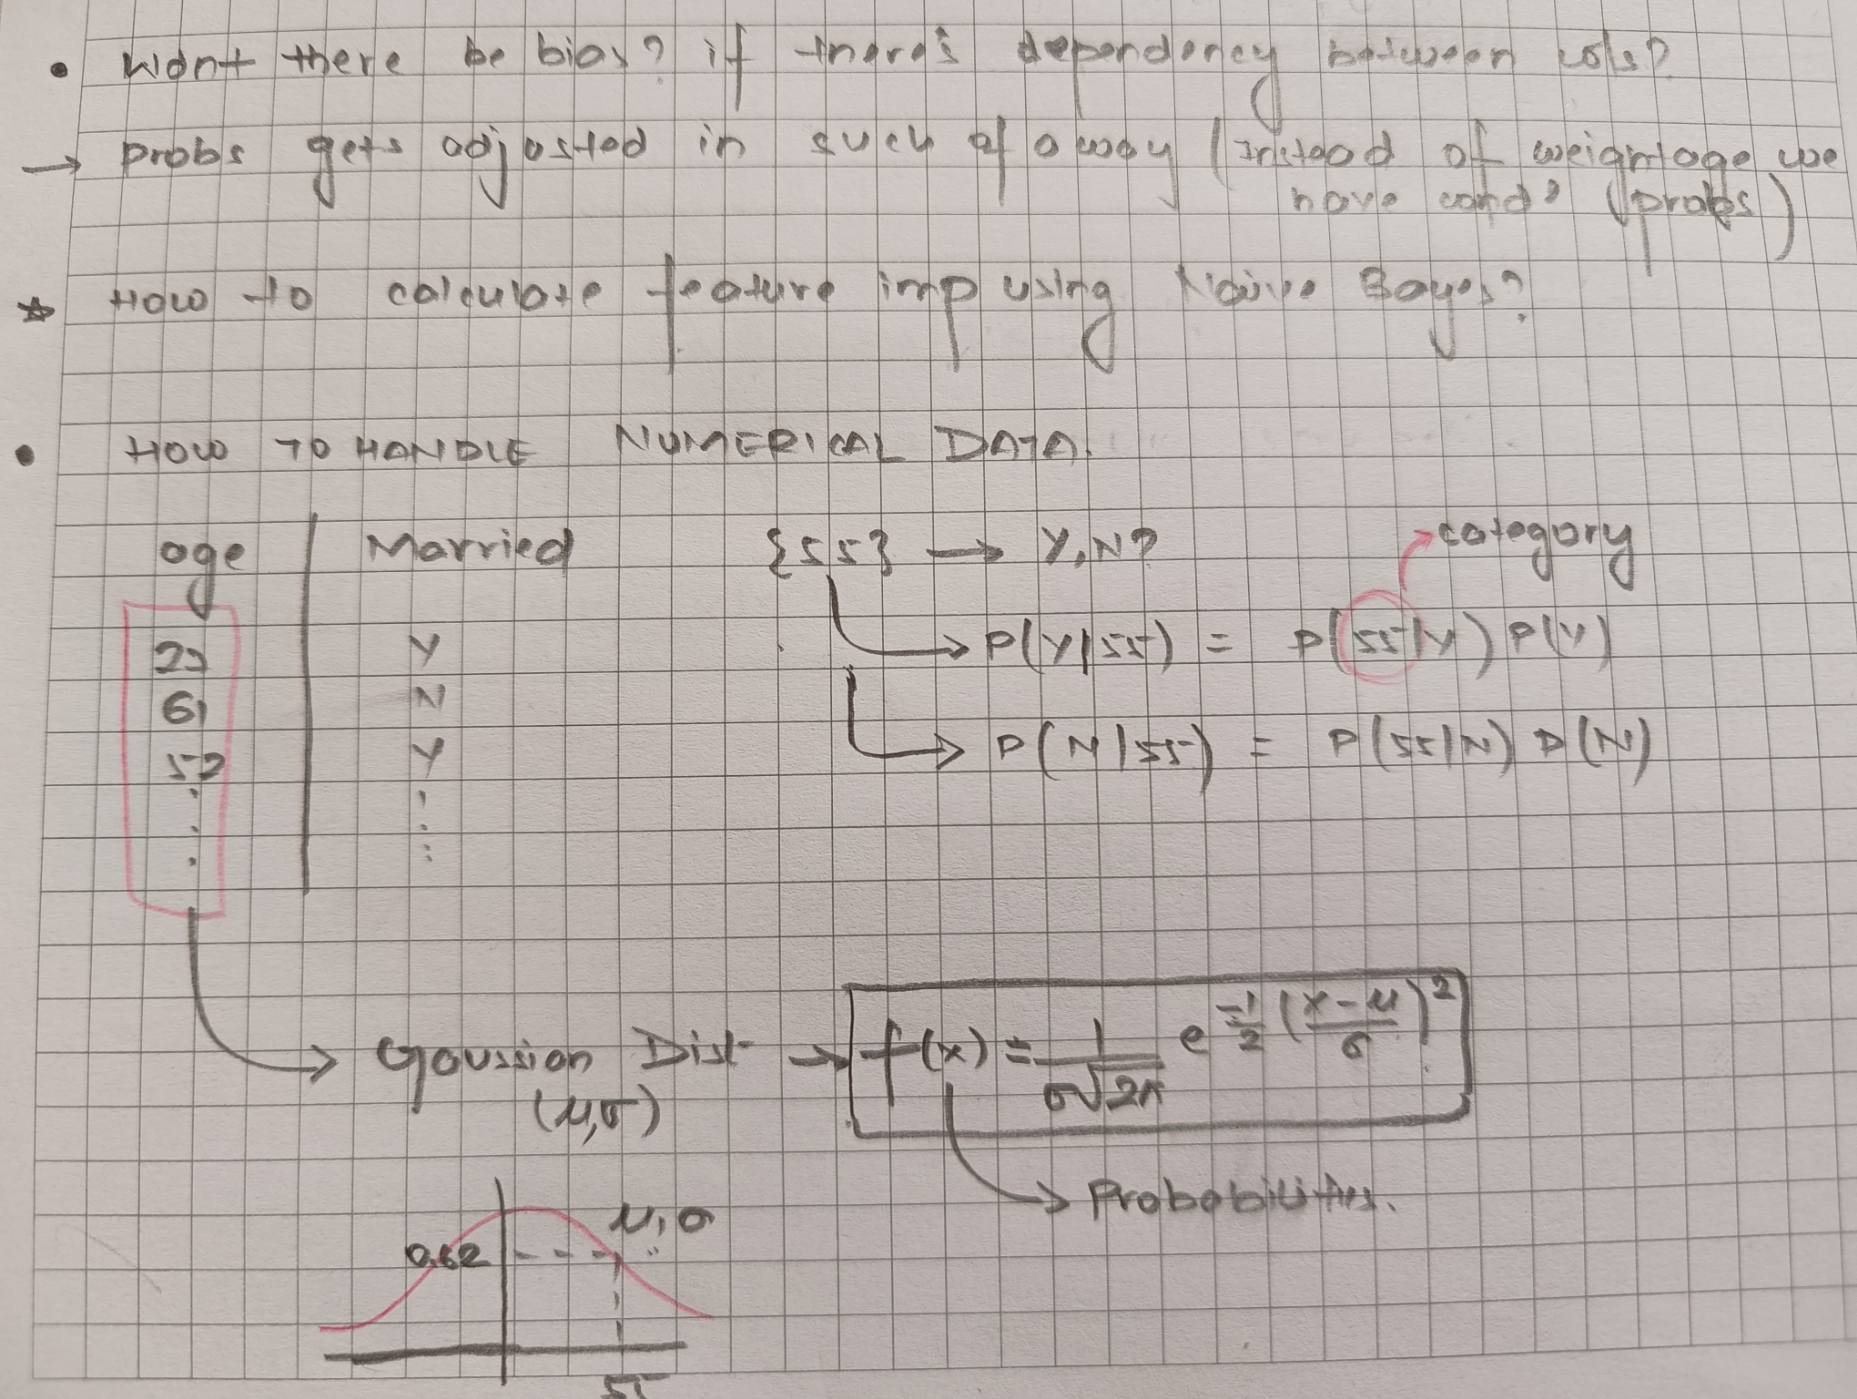 • Wont there be bias? if there's dependency between cols?
→ Probs gets adjusted in such of a way (Instead of weightage we
have cond? (probs)
☆ How to calculate feature imp using Naive Bayes?
• HOW TO HANDLE NUMERICAL DATA.
age | Married {55} → Y,N? → category
Y → P(Y|55) = P(55|Y) P(Y)
61 N
Y → P(N|55) = P(55|N) P(N)
→ Gaussian Dist → f(x) = 1/σ√2π e^-1/2 (x-μ/σ)^2
(μ,σ)
→ Probabilities.
μ,σ
0.62
55